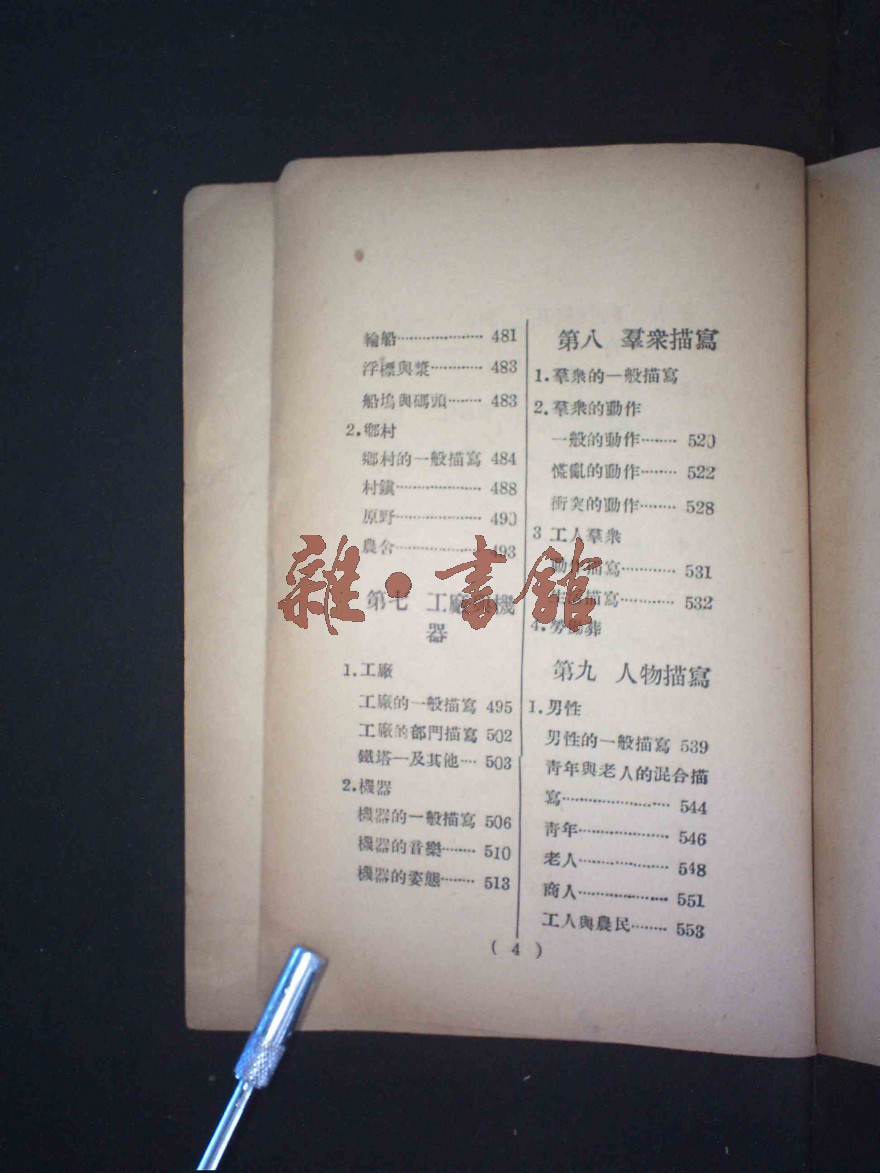 輪船 481
浮標與槳 483
船塢與碼頭 483
2.鄉村
鄉村的一般描寫 484
村鎭 488
原野 490
農舍 493
第七 工廠與機
器
1.工廠
工廠的一般描寫 495
工廠的部門描寫 502
鐵塔—及其他 503
2.機器
機器的一般描寫 506
機器的音樂 510
機器的姿態 513
第八 羣衆描寫
1.羣衆的一般描寫
2.羣衆的動作
一般的動作 520
慌亂的動作 522
衝突的動作 528
3 工人羣衆
動作描寫 531
生活描寫 532
4.勞動葬
第九 人物描寫
1.男性
男性的一般描寫 539
靑年與老人的混合描
寫 544
靑年 546
老人 548
商人 551
工人與農民 553
( 4 )
雜·書館